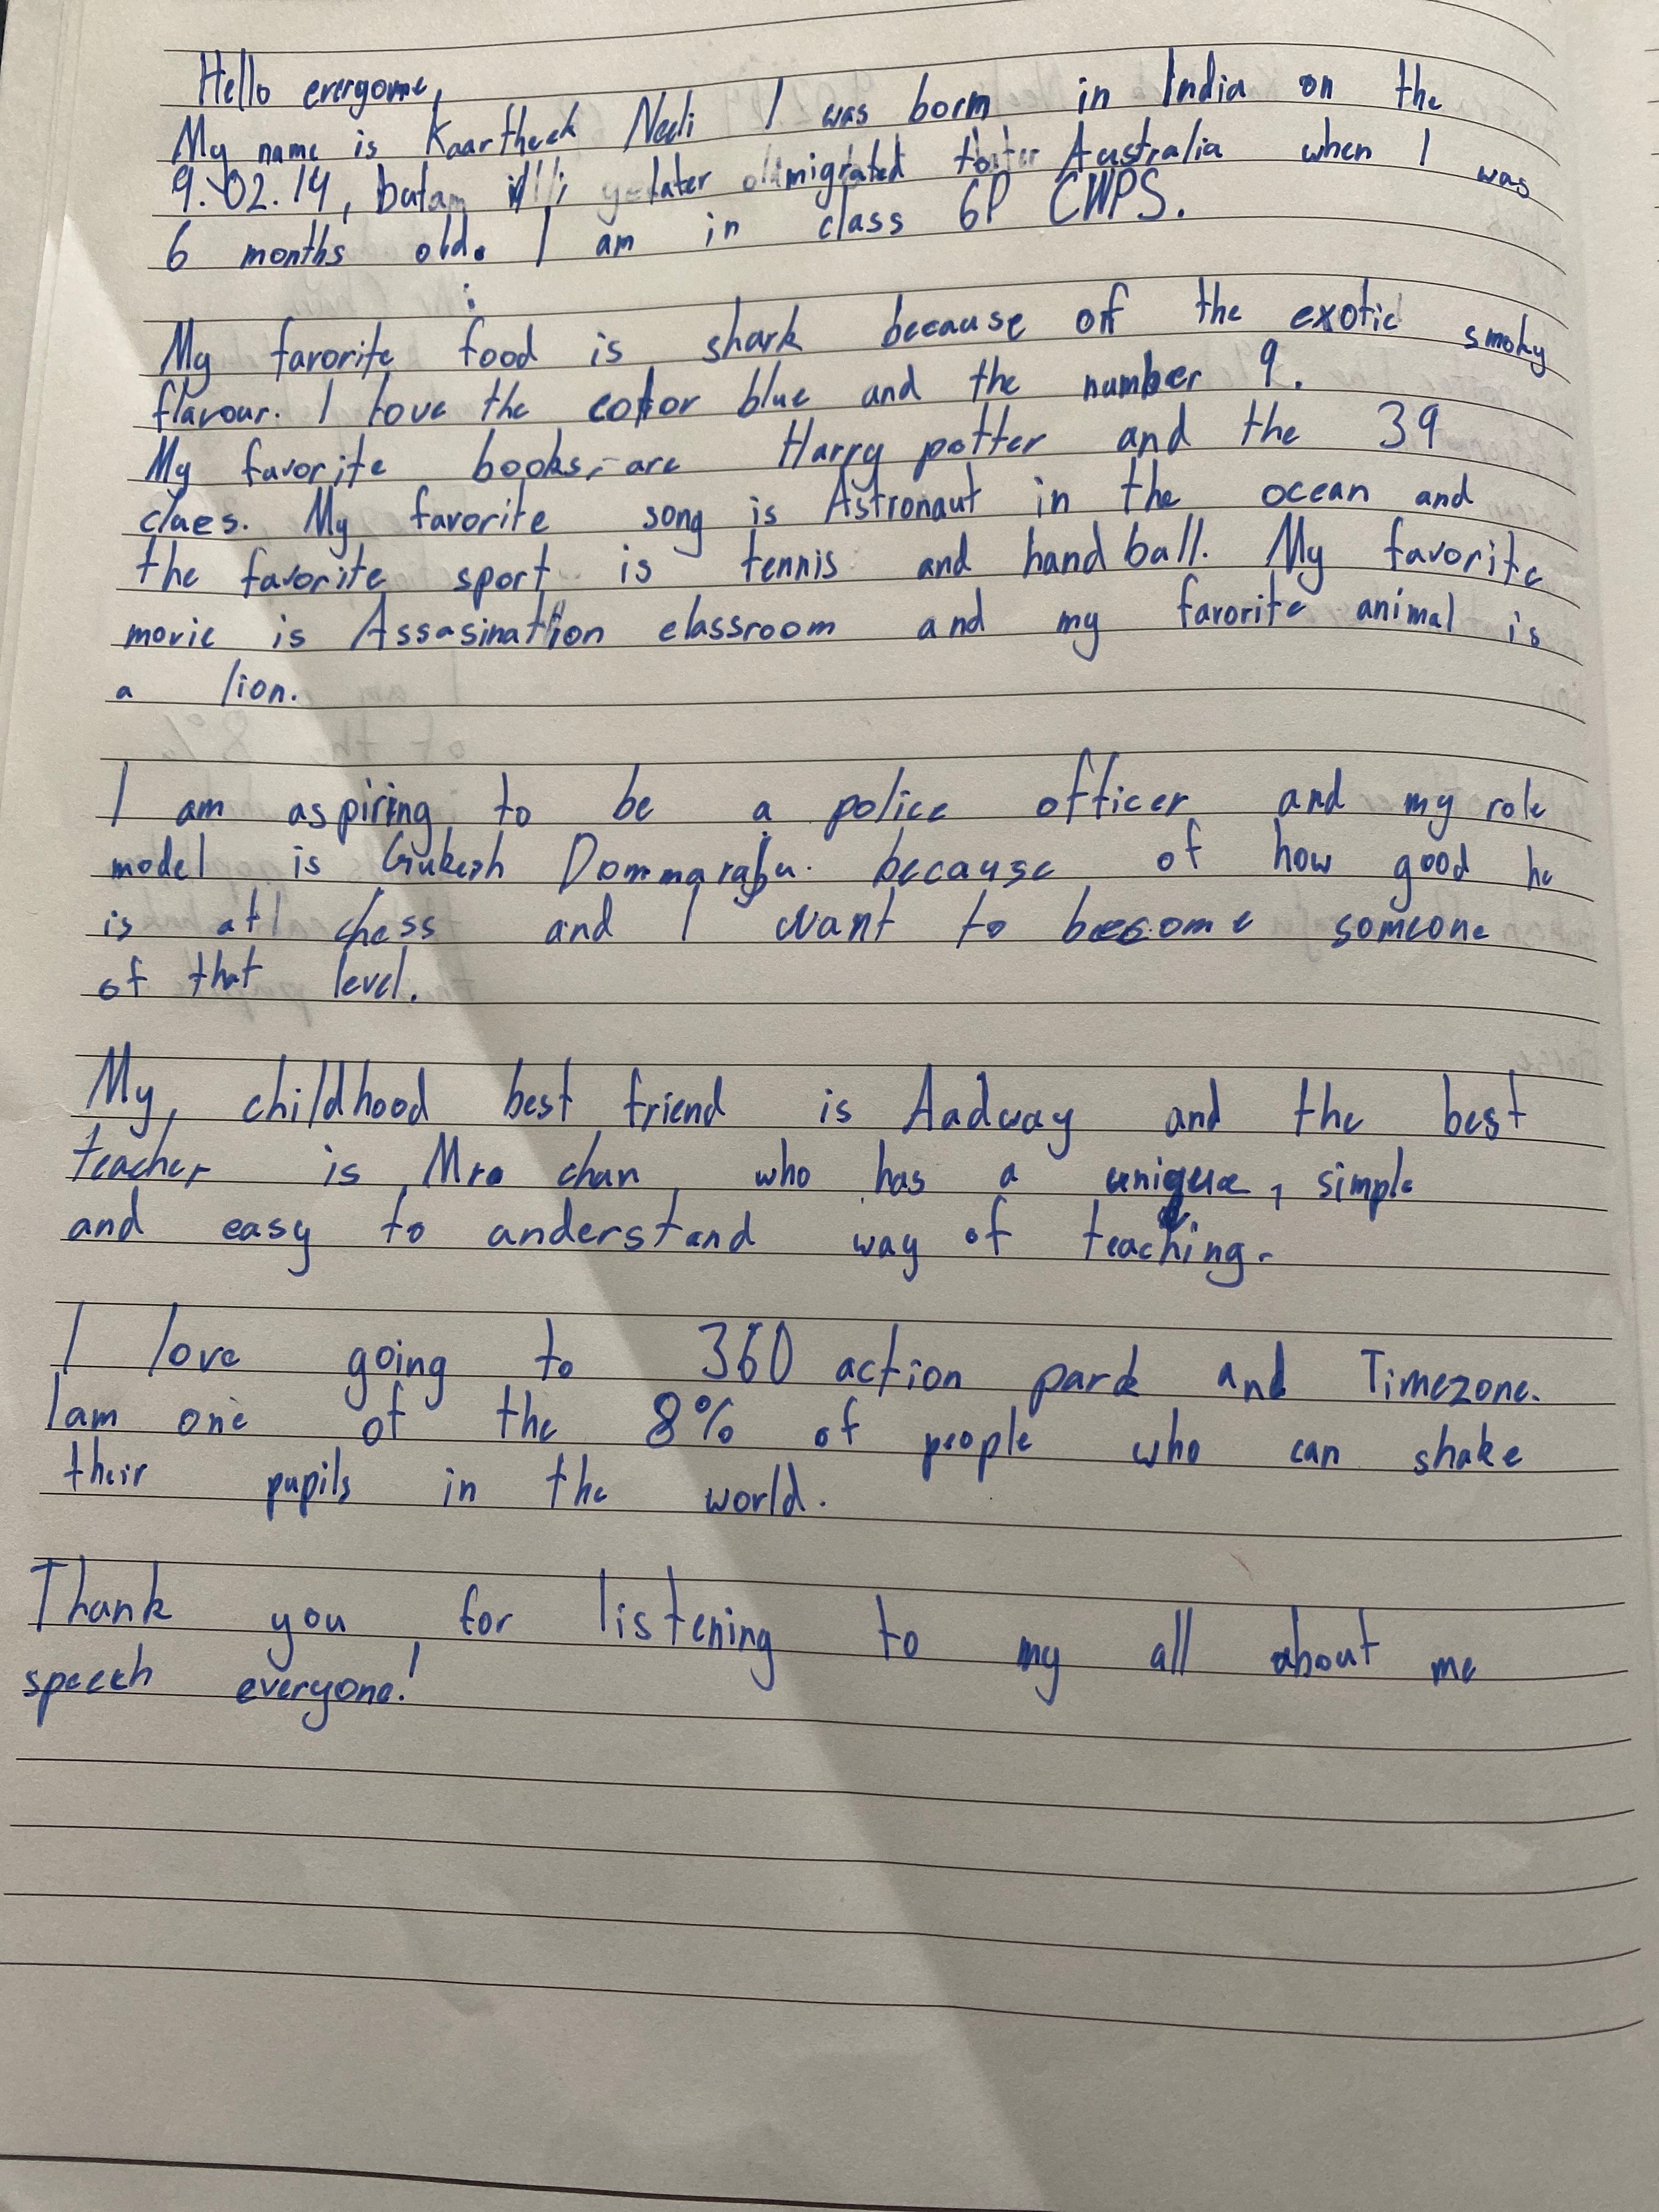 Hello everyone,
My name is Kaartheek Nedi I was born in India on the
9.02.14, but later migrated to Australia when I was
6 months old. I am in class 6P CWPS.
My favorite food is shark because off the exotic smoky
flavour. I love the color blue and the number 9.
My favorite books are Harry potter and the 39
clues. My favorite song is Astronaut in the ocean and
the favorite sport is tennis and hand ball. My favorite
movie is Assasination classroom and my favorite animal is
a lion.
I am aspiring to be a police officer and my role
model is Gukesh Dommaraju. because of how good he
is at chess and I want to become someone
of that level.
My childhood best friend is Aadvay and the best
teacher is Mrs chan who has a unique, simple
and easy to understand way of teaching.
I love going to 360 action park and Timezone.
I am one of the 8% of people who can shake
their pupils in the world.
Thank you for listening to my all about me
speech everyone!